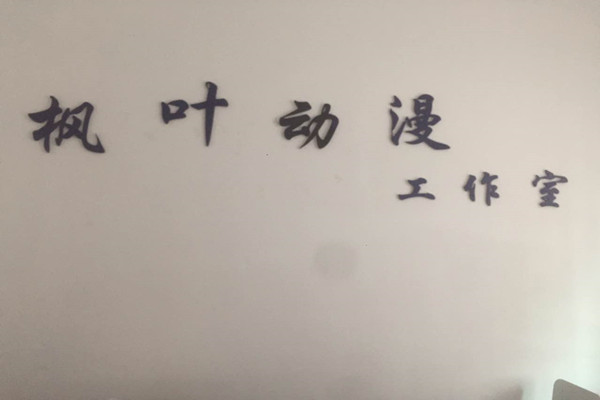 枫叶动漫
工作室